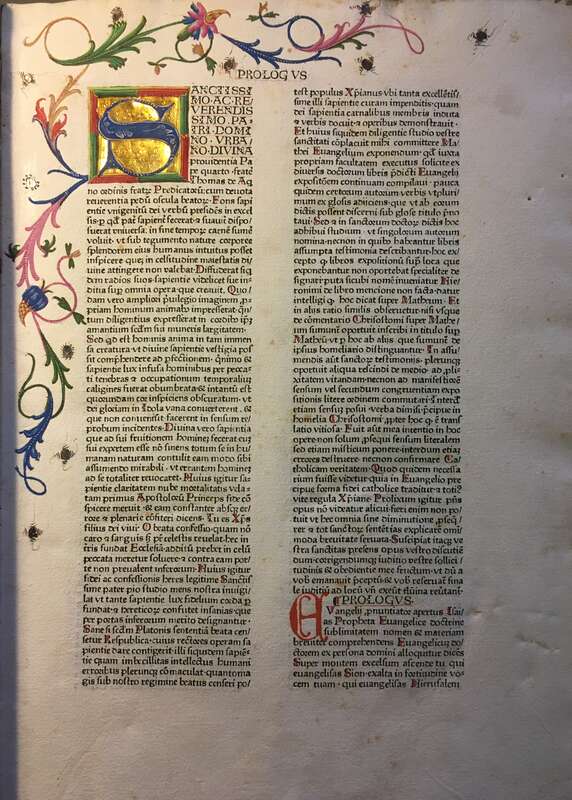 PROLOGVS
SANCTISSI
MO·AC·RE/
VERENDIS
SIMO PA/
TRI·DOMI
NO·VRBA/
NO·DIVINA
prouidentia Pa
pe quarto·frater
Thomas de Aq
no ordinis fratrum Predicatorum:cum deuota
reuerentia pedum oscula beatorum·Fons sapi
entie vnigenitus dei verbum presidens in excel
fuerat vniuersa·in fine temporum carnem sumere
voluit·vt sub tegumento nature corporee
splendorem eius humanus intuitus posset
inspicere quem in celsitudine maiestatis di/
uine attingere non valebat·Diffuderat siqui
dem radios suos·sapientie videlicet sue in/
ditia super omnia opera que creauit·Quo/
dam vero ampliori priuilegio imaginem
priam hominum animabus impresserat
tum diligentius expresserat in cordibus
amantium secundum sui muneris largitatem.
Sed quid est hominis anima in tam immen
sa creatura·vt diuine sapientie vestigia pos
sit comprehendere ad perfectionem
sapientie lux infusa hominibus per pecca/
ti tenebras & occupationum temporalium
caligines fuerat obumbrata & intantum est
quorundam cor insipiens obscuratum·vt
dei gloriam in Idola vana conuerterent·&
que non conuenit facerent in sensum re/
probum incidentes·Diuina vero sapientia
que ad sui fruitionem hominem fecerat eum
sui expertem esse non sinens totum se in hu/
manam naturam contulit eam modo sibi
assumendo mirabili·vt errantem hominem
ad se totaliter reuocaret·Huius igitur sa/
pientie claritatem nube mortalitatis vela/
tam primus Apostolorum Princeps fide con
spicere meruit·& eam constanter absque er/
rore & plenarie confiteri dicens·Tu es Xps
filius dei viui·O beata confessio·quam non
caro & sanguis sed pater celestis reuelat·hec in
terris fundat Ecclesiam·aditum prebet in celum
peccata meretur soluere·& contra eam por/
te non preualent inferorum·Huius igitur
fidei ac confessionis heres legitime Sanctis
sime pater pio studio mens nostra inuigi/
lat vt tante sapientie lux fidelium corda per
fundat·& hereticorum confutet insanias·que
porte inferorum merito designantur·
Sane si secundum Platonis sententiam beata cen/
setur Respublica·cuius rectores operam sa
pientie dare contigerit·illi siquidem sapien
tie quam imbecillitas intellectus humani
erroribus plerumque commaculat·quantoma
gis sub nostro regimine beatus censeri po/
test populus Xpianus vbi tanta excellentis/
sime illi sapientie curam impenditis·quam
dei sapientia carnalibus membris induta
& verbis docuit·& operibus demonstrauit·
Et huius siquidem diligentie studio vestre
sanctitati complacuit mihi committere Ma/
thei Euangelium exponendum·quod iuxta
propriam facultatem executus solicite ex
diuersis doctorum libris predicti Euangelii
expositionem continuam compilaui·pauca
quidem certorum auctorum verbis vt pluri/
mum ex glosis adiiciens·que vt ab eorum
dictis possent discerni sub glose titulo prenotaui·
Sed & in sanctorum doctorum dictis hoc
adhibui studium·vt singulorum autorum
nomina·necnon in quibus habeantur libris
assumpta testimonia describantur·hoc ex/
cepto quod libros expositionum supra loca que
exponebantur non oportebat specialiter de
signari·puta sicubi nomen inueniatur Hie/
ronimi de libro mentione non facta·datur
intelligi quod hoc dicat super Matheum·Et
in aliis ratio similis obseruetur·nisi vbi
de comentario Chrisostomi super Mathe/
um sumuntur oportuit inscribi in titulo super
Matheum vt per hoc ab aliis que sumuntur de
ipsius homeliario distinguantur·In assu/
mendis autem sanctorum testimoniis·plerumque
oportuit aliqua rescindi de medio·ad pro
lixitatem vitandam·necnon ad manifestiorem
sensum vel secundum congruentiam expo/
sitionis litere ordinem commutari·Interdum
etiam sensum posui·verba dimisi·precipue in
homelia Chrisostomi·propter hoc quod est trans/
latio vitiosa·Fuit autem mea intentio in hoc
opere·non solum prosequi sensum literalem
sed etiam misticum ponere·interdum etiam
errores destruere·necnon confirmare Ca/
tholicam veritatem·Quod quidem necessa/
rium fuisse videtur·quia in Euangelio pre
cipue forma fidei catholice traditur·& toti9
vite regula Xpiane·Prolixum igitur presens
opus non videatur alicui·fieri enim non po/
tuit vt hec omnia sine diminutione prosequerer
& tot sanctorum sententias explicare omni
moda breuitate seruata·Suscipiat itaque ve
stra sanctitas presens opus vestro discutien/
dum·corrigendumque iudicio vestre sollici
tudinis & obedientie mee fructum·vt dum a
vobis emanauit preceptum & vobis reseruatur fina/
le iudicium ad locum vnde exeunt flumina reuertantur·
PROLOGVS·
EVangelii prenuntiator apertus Isai/
as Propheta Euangelice doctrine
sublimitatem nomen & materiam
breuiter comprehendens Euangelicum do
ctorem ex persona domini alloquitur dicens
Super montem excelsum ascende tu·qui
euangelisas Sion·exalta in fortitudine vo/
cem tuam·qui euangelisas Hierusalem